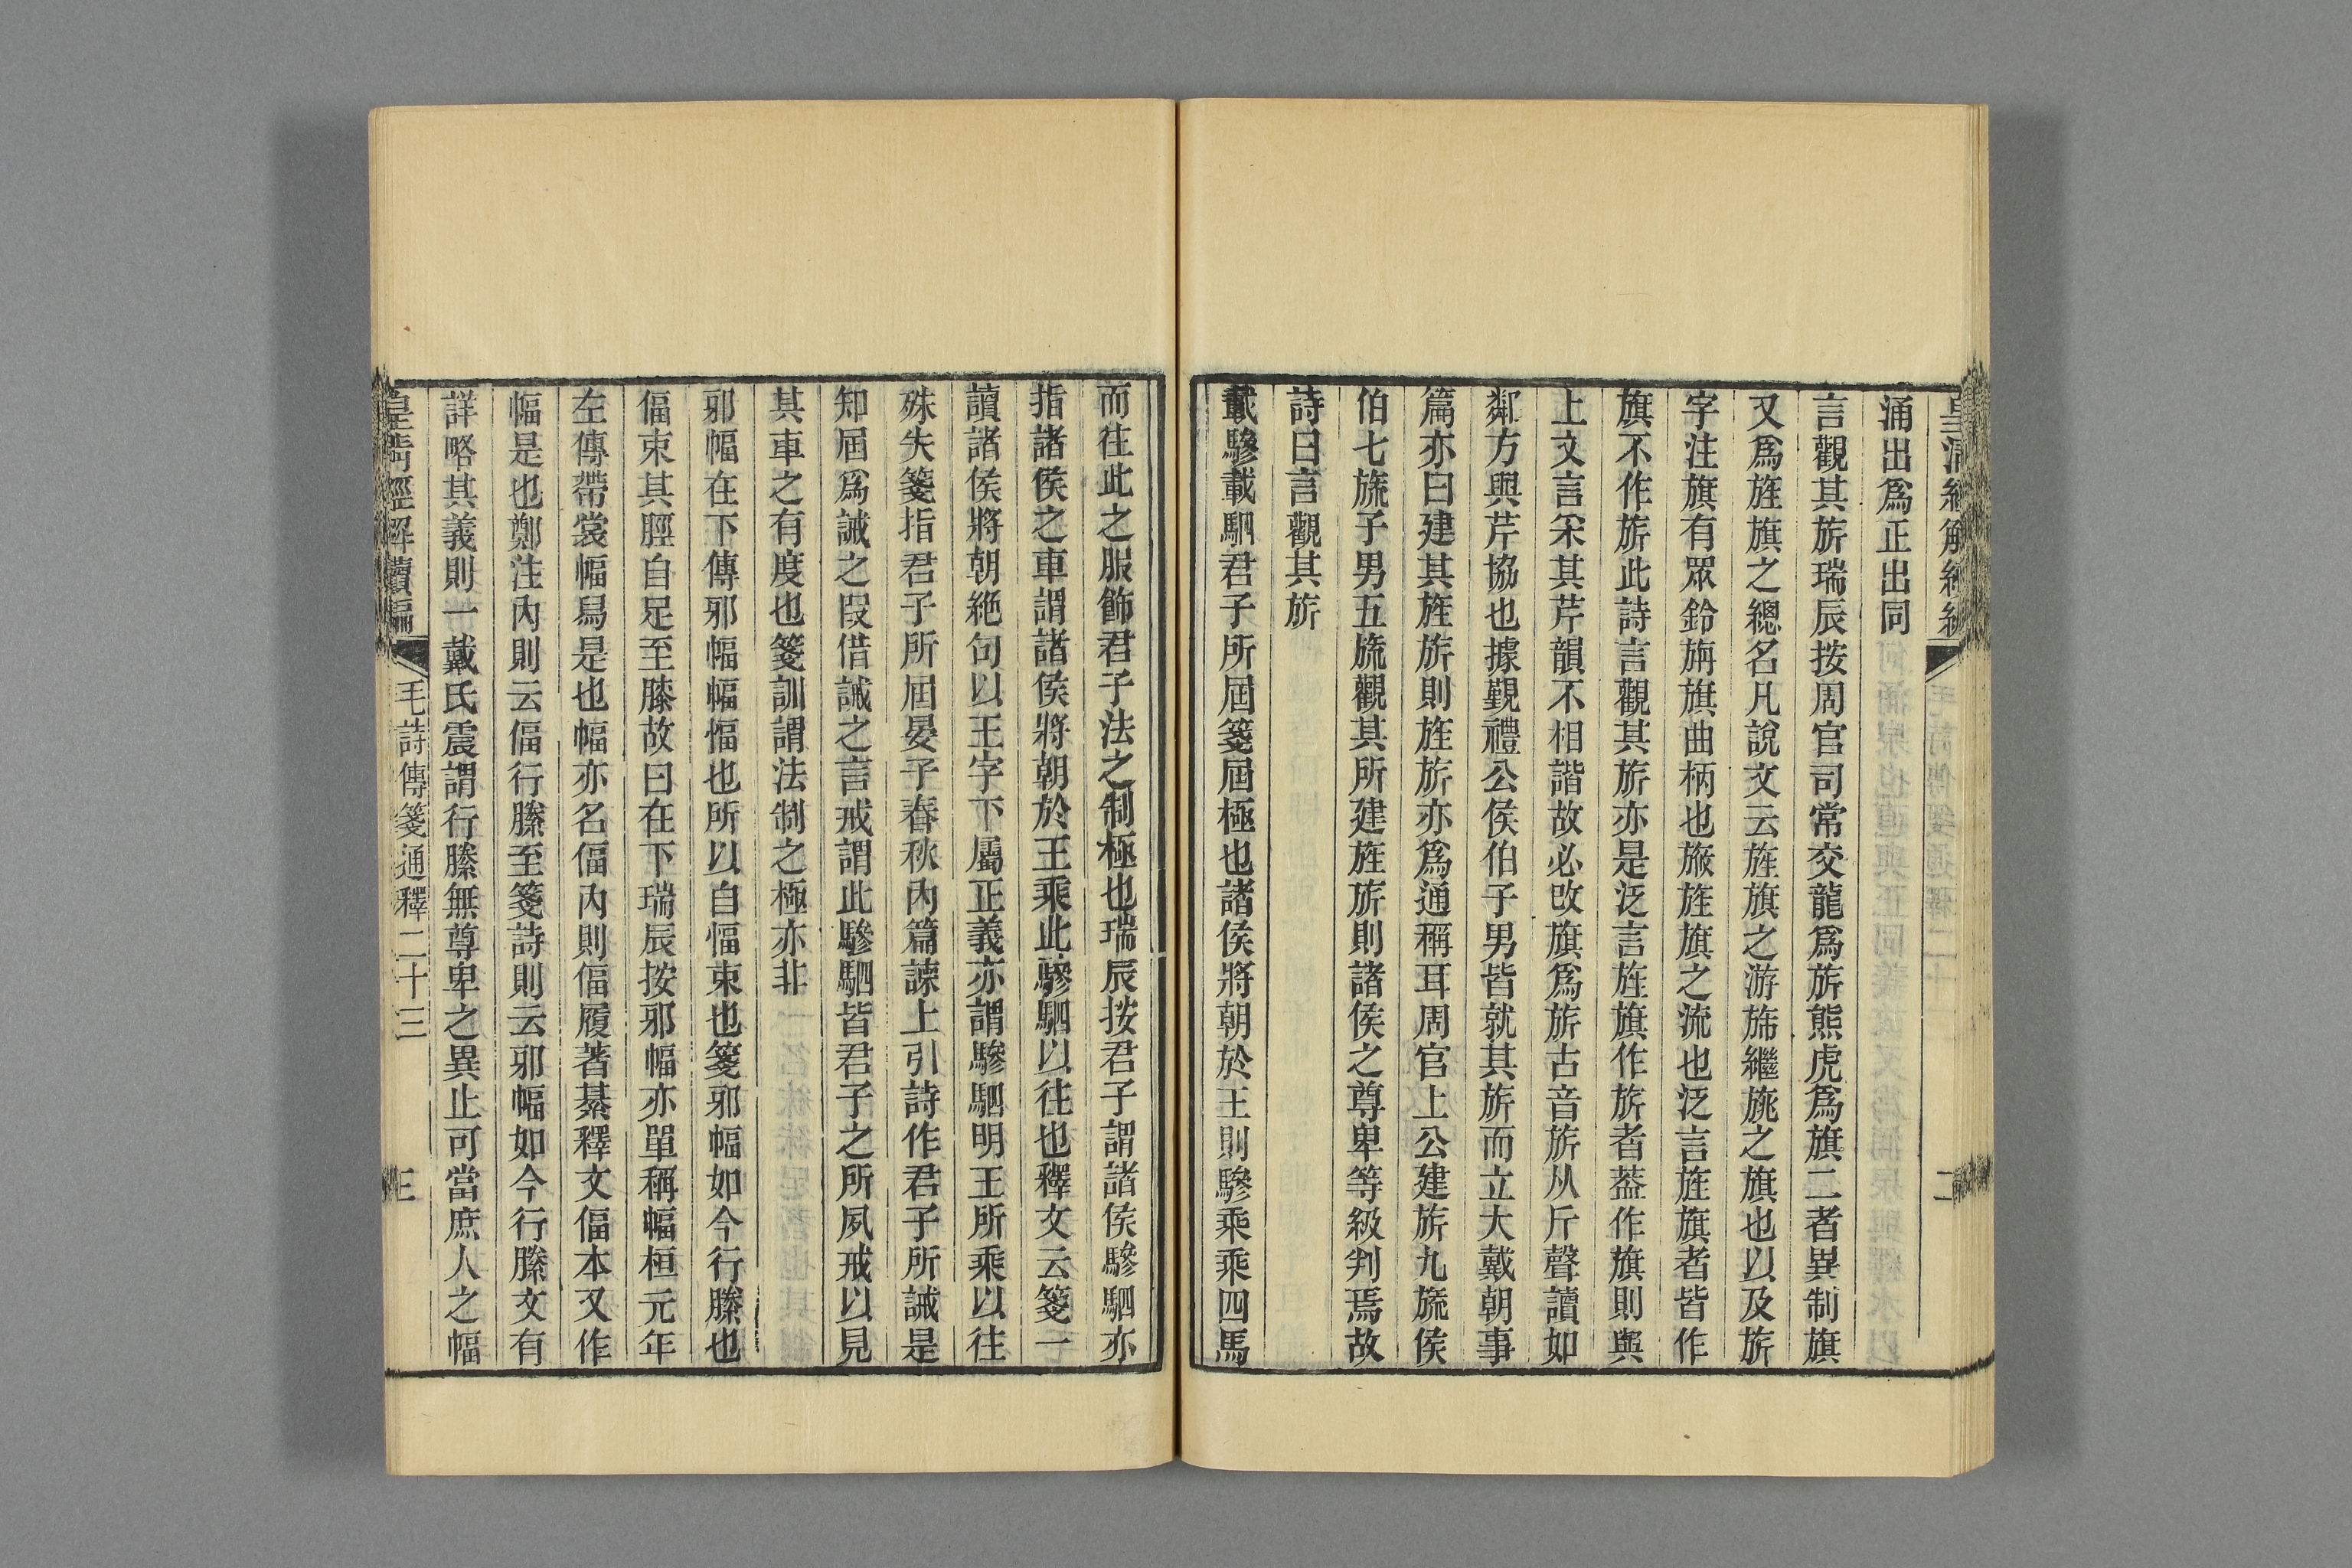 涌出爲正出同
言觀其旂瑞辰按周官司常交龍爲旂熊虎爲旗二者異制旗
又爲旌旗之總名凡說文云旌旗之游㫍繼旐之旗也以及旂
字注旗有眾鈴旃旗曲柄也㫍旌旗之流也泛言旌旗者皆作
旗不作旂此詩言觀其旂亦是泛言旌旗作旂者葢作旗則與
上文言采其芹韻不相諧故必改旗爲旂古音旂从斤聲讀如
鄰方與芹協也據覲禮公侯伯子男皆就其旂而立大戴朝事
篇亦曰建其旌旂則旌旂亦爲通稱耳周官上公建旂九旒侯
伯七旒子男五旒觀其所建旌旂則諸侯之尊卑等級判焉故
詩曰言觀其旂
載驂載駟君子所屆箋屆極也諸侯將朝於王則驂乘乘四馬
而往此之服飾君子法之制極也瑞辰按君子謂諸侯驂駟亦
指諸侯之車謂諸侯將朝於王乘此驂駟以往也釋文云箋一
讀諸侯將朝絶句以王字下屬正義亦謂驂駟明王所乘以往
殊失箋指君子所屆晏子春秋內篇諫上引詩作君子所誡是
知屆爲誡之叚借誡之言戒謂此驂駟皆君子之所夙戒以見
其車之有度也箋訓謂法制之極亦非
邪幅在下傳邪幅幅偪也所以自偪束也箋邪幅如今行縢也
偪束其脛自足至膝故曰在下瑞辰按邪幅亦單稱幅桓元年
左傳帶裳幅舄是也幅亦名偪內則偪履著綦釋文偪本又作
幅是也鄭注內則云偪行縢至箋詩則云邪幅如今行縢文有
詳略其義則一戴氏震謂行縢無尊卑之異止可當庶人之幅
皇清經解續編 毛詩傳箋通釋二十三 三